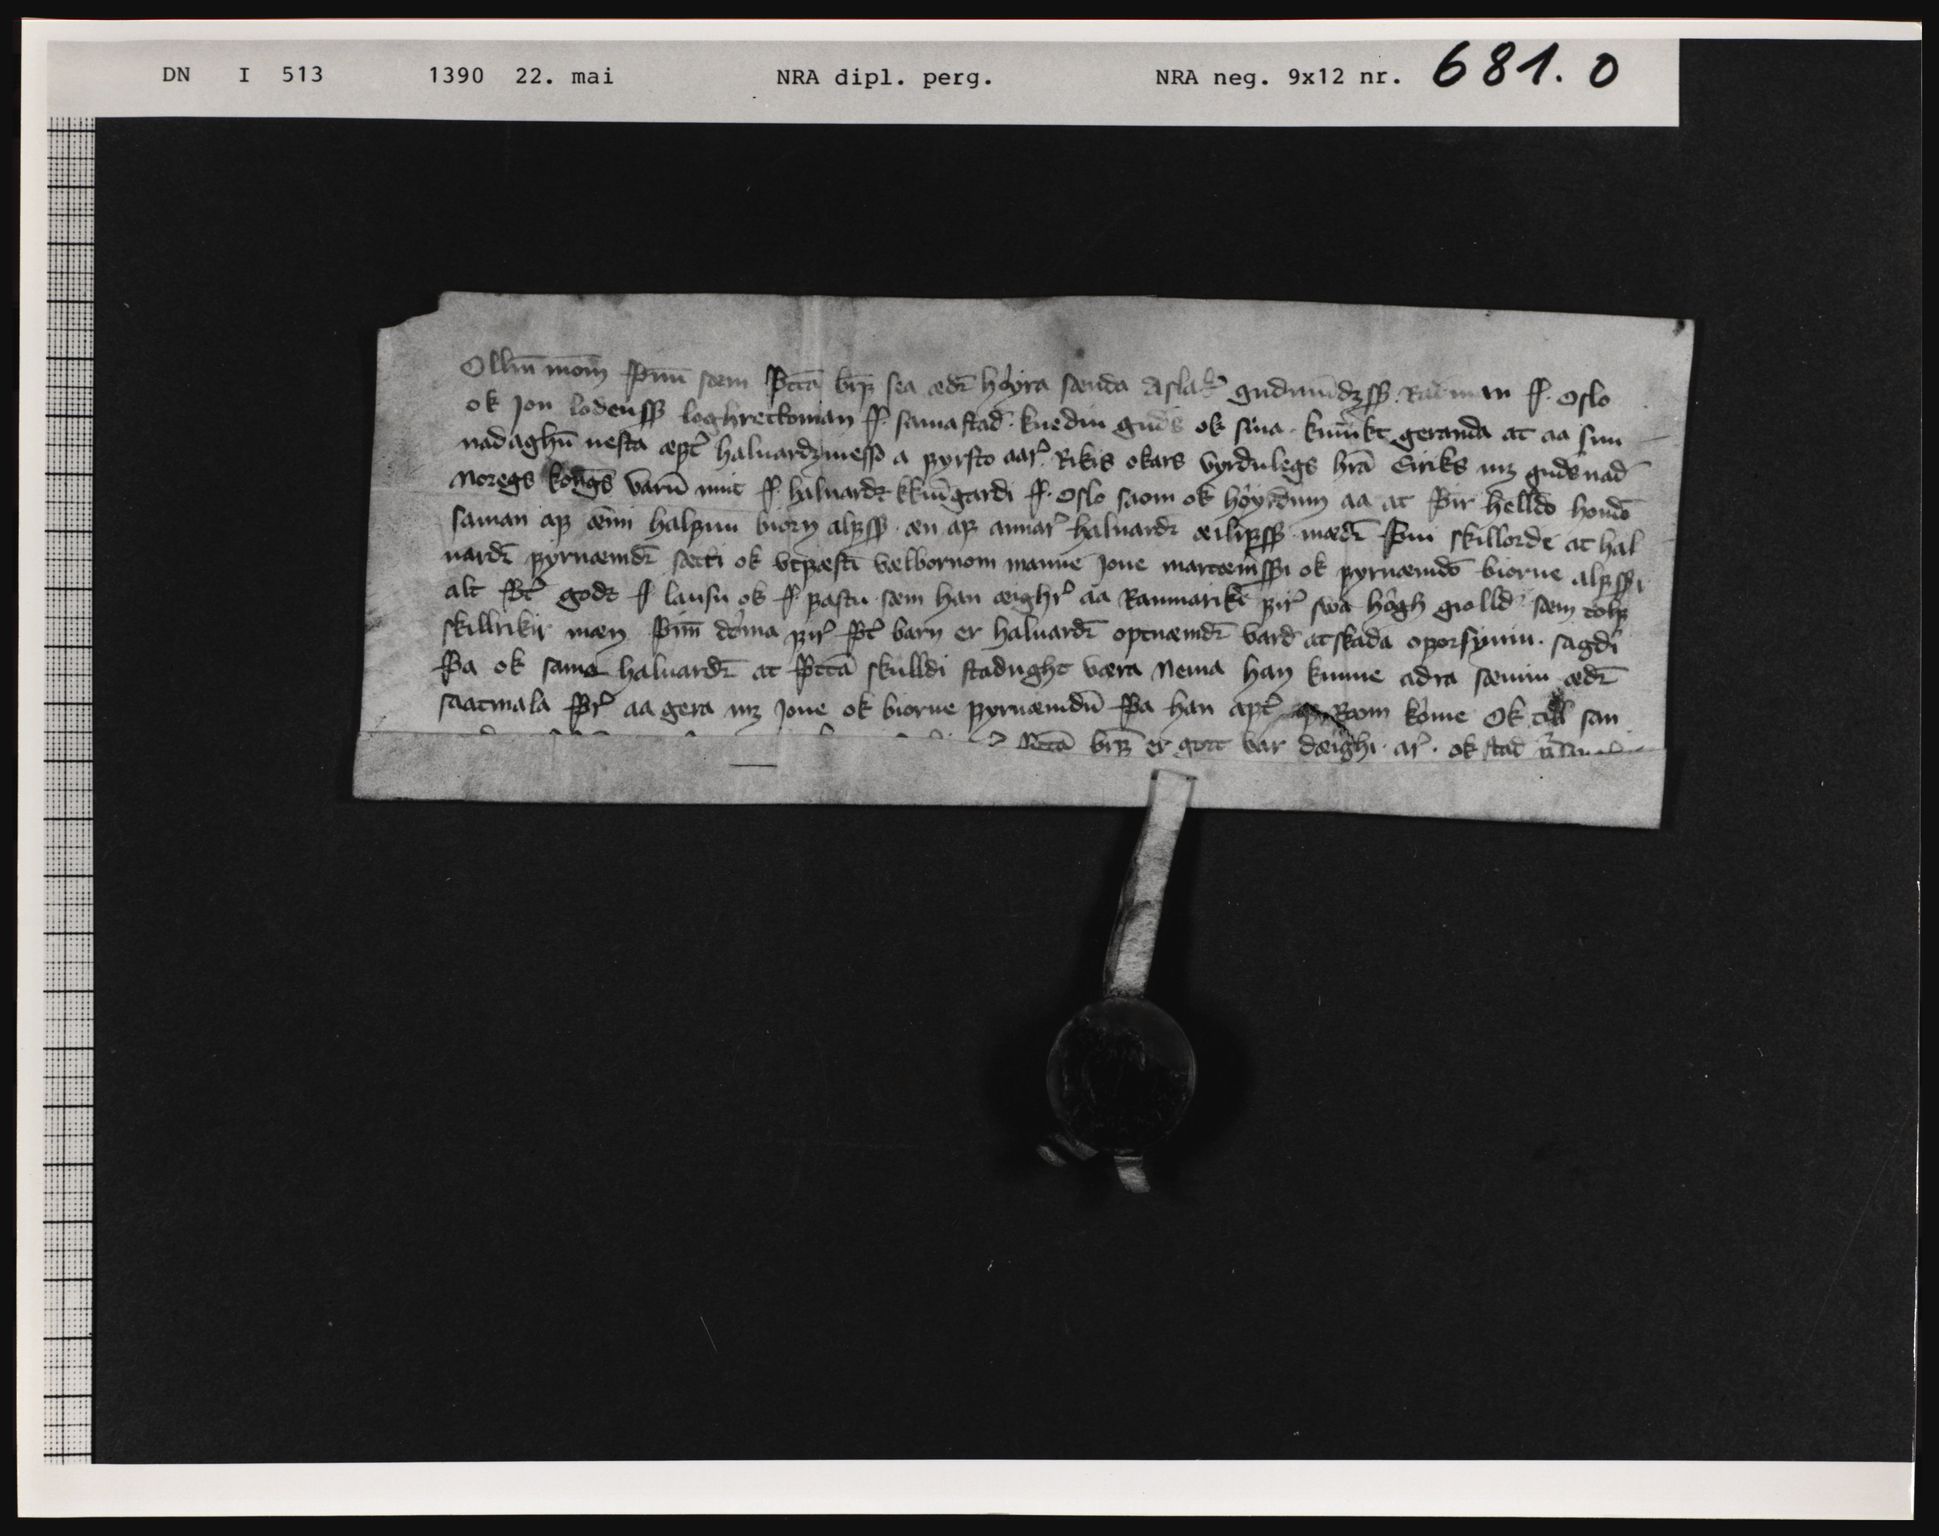 DN I 513 1390 22. mai NRA dipl. perg. NRA neg. 9x12 nr. 681.0
Ollm̄ monm̄ þm̄ sæm þttā br̄f sea ædr̄ høyra sænda Aslak gudmūdzsß. Radman j. Oslo
ok Jon lodensß loghrettoman j. samastad. kuediu guds ok sina. kun̄ikt geranda at aa sun
nadaghū nesta æpt̄ haluardzmesso a fyrsto aar̄ Rikis okars vyrdulegs hr̄a Eiriks mz guds nad
Noregs kon̄gs varū mit j. haluardz kkiu̅gardi j. Oslo saom ok høyrdum aa at þir helldo hondō
saman af ænni halfuu biorn alfsß. æn af annar̄ haluardr æilifsß. mædr̄ þui skillorde at hal
uardr̄ fyrnæmdr̄ sætti ok vtfæsti vælbornom manne Jone martæinsßi ok fyrnæmdō biorne alfsßi
alt þt̄ godz j lausu ok j fastu sæm han æighr̄ aa Raumarikē fir̄ swa høgh giolld sæm tolf
skillrikir mæn þm̄ døma fir̄ þt̄ barn er haluardr̄ optnæmdr̄ vard at skada oforsyniu. sagdi
þa ok sama haluardr̄ at þttā skulldi stadught væra Nema han kunne adra sæmiu ædr̄
saatmala þr̄ aa gera mz Jone ok biorne fyrnæmdū þa han apt̄ af Room køme Ok till san
þttā br̄f er gort var dæighi. ar̄. ok stad